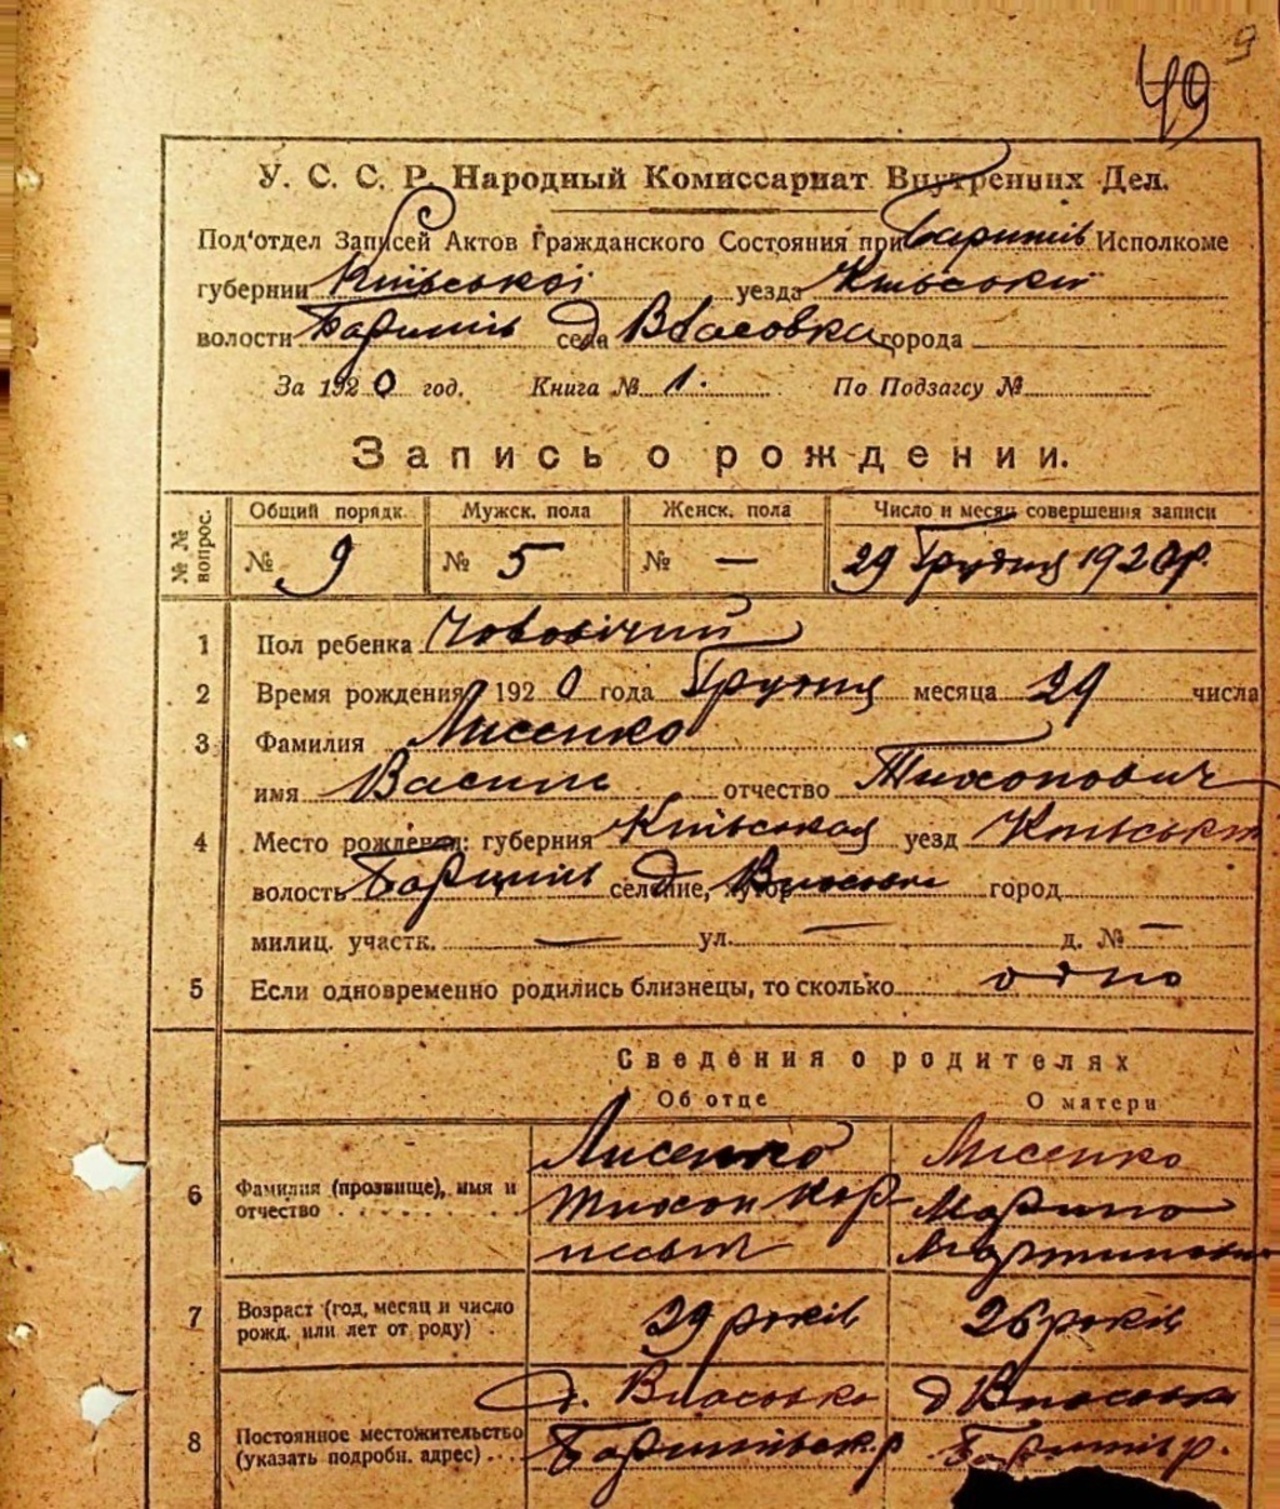 9
49
У. С. С. Р. Народный Комиссариат Внутренних Дел.
Под'отдел Записей Актов Гражданского Состояния при Баришів Исполкоме
губернии Київської уезда Київський
волости Баришів села д Власовка города
За 1920 год. Книга № 1. По Подзагсу №
Запись о рождении.
№ № вопрос. Общий порядк. Мужск. пола Женск. пола Число и месяц совершения записи
№ 9 № 5 № — 29 Грудня 1920 р.
1 Пол ребенка Чоловічий
2 Время рождения 1920 года Грудня месяца 29 числа
3 Фамилия Лисенко
имя Василь отчество Тихонович
4 Место рождения: губерния Київская уезд Київський
волость Баришів селение, хутор д Власовка город
милиц. участк. — ул. — д. № —
5 Если одновременно родились близнецы, то сколько одно
Сведения о родителях
Об отце О матери
Лисенко Лисенко
6 Фамилия (прозвище), имя и отчество Тихон Кор- Марина
Мартиновна
7 Возраст (год, месяц и число рожд. или лет от роду) 29 років 26 років
д. Власовка д Власовка
8 Постоянное местожительство (указать подробн. адрес) Баришівск. р Баришів р.